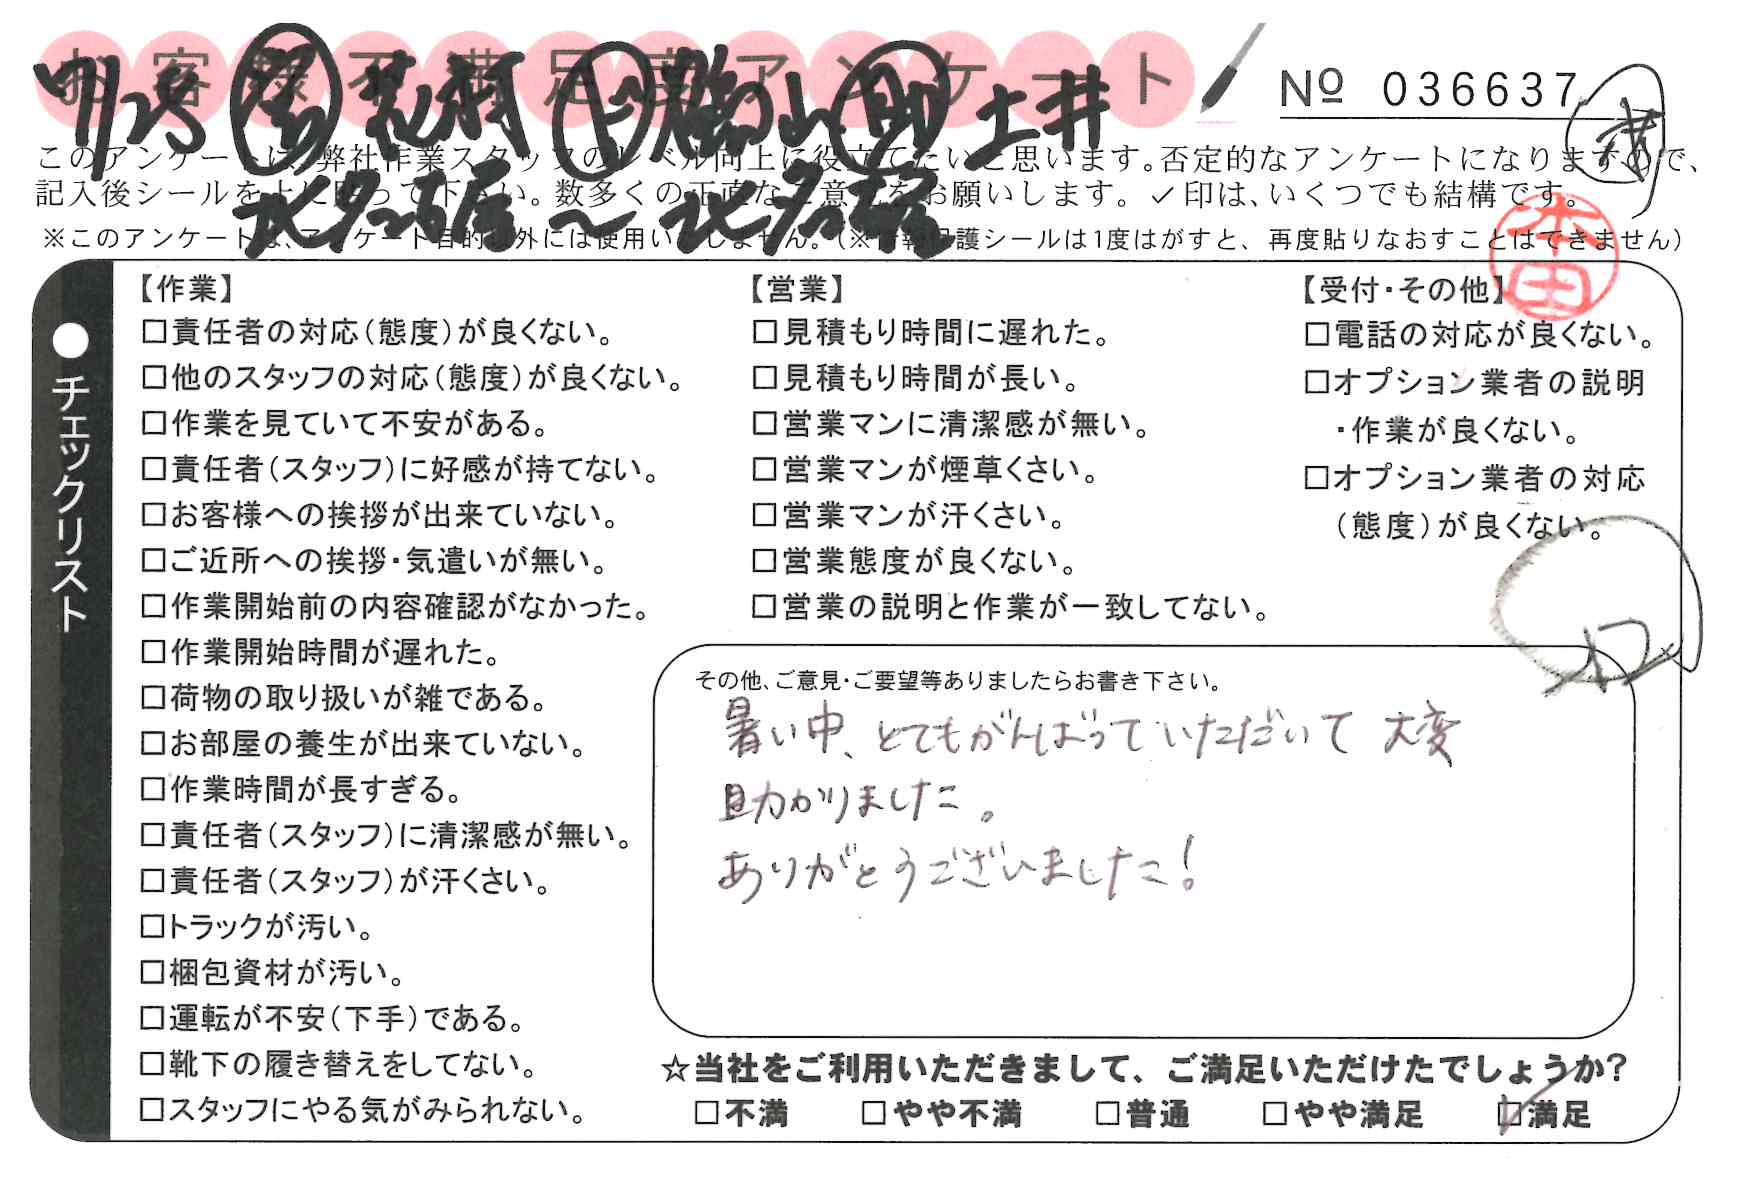 お客様不満足度アンケート
№ 036637
7/25 営 花村 ト 勝山 助 土井
北名古屋～北名古屋
このアンケートは、弊社作業スタッフのレベル向上に役立てたいと思います。否定的なアンケートになりますので、
記入後シールを上に貼って下さい。数多くの正直なご意見をお願いします。✓印は、いくつでも結構です。
※このアンケートは、アンケート目的以外には使用いたしません。（※情報保護シールは1度はがすと、再度貼りなおすことはできません）
本田
●チェックリスト
【作業】
□責任者の対応（態度）が良くない。
□他のスタッフの対応（態度）が良くない。
□作業を見ていて不安がある。
□責任者（スタッフ）に好感が持てない。
□お客様への挨拶が出来ていない。
□ご近所への挨拶・気遣いが無い。
□作業開始前の内容確認がなかった。
□作業開始時間が遅れた。
□荷物の取り扱いが雑である。
□お部屋の養生が出来ていない。
□作業時間が長すぎる。
□責任者（スタッフ）に清潔感が無い。
□責任者（スタッフ）が汗くさい。
□トラックが汚い。
□梱包資材が汚い。
□運転が不安（下手）である。
□靴下の履き替えをしてない。
□スタッフにやる気がみられない。
【営業】
□見積もり時間に遅れた。
□見積もり時間が長い。
□営業マンに清潔感が無い。
□営業マンが煙草くさい。
□営業マンが汗くさい。
□営業態度が良くない。
□営業の説明と作業が一致してない。
【受付・その他】
□電話の対応が良くない。
□オプション業者の説明
・作業が良くない。
□オプション業者の対応
（態度）が良くない。
その他、ご意見・ご要望等ありましたらお書き下さい。
暑い中、とてもがんばっていただいて 大変
助かりました。
ありがとうございました！
☆当社をご利用いただきまして、ご満足いただけたでしょうか？
□不満 □やや不満 □普通 □やや満足 ☑満足